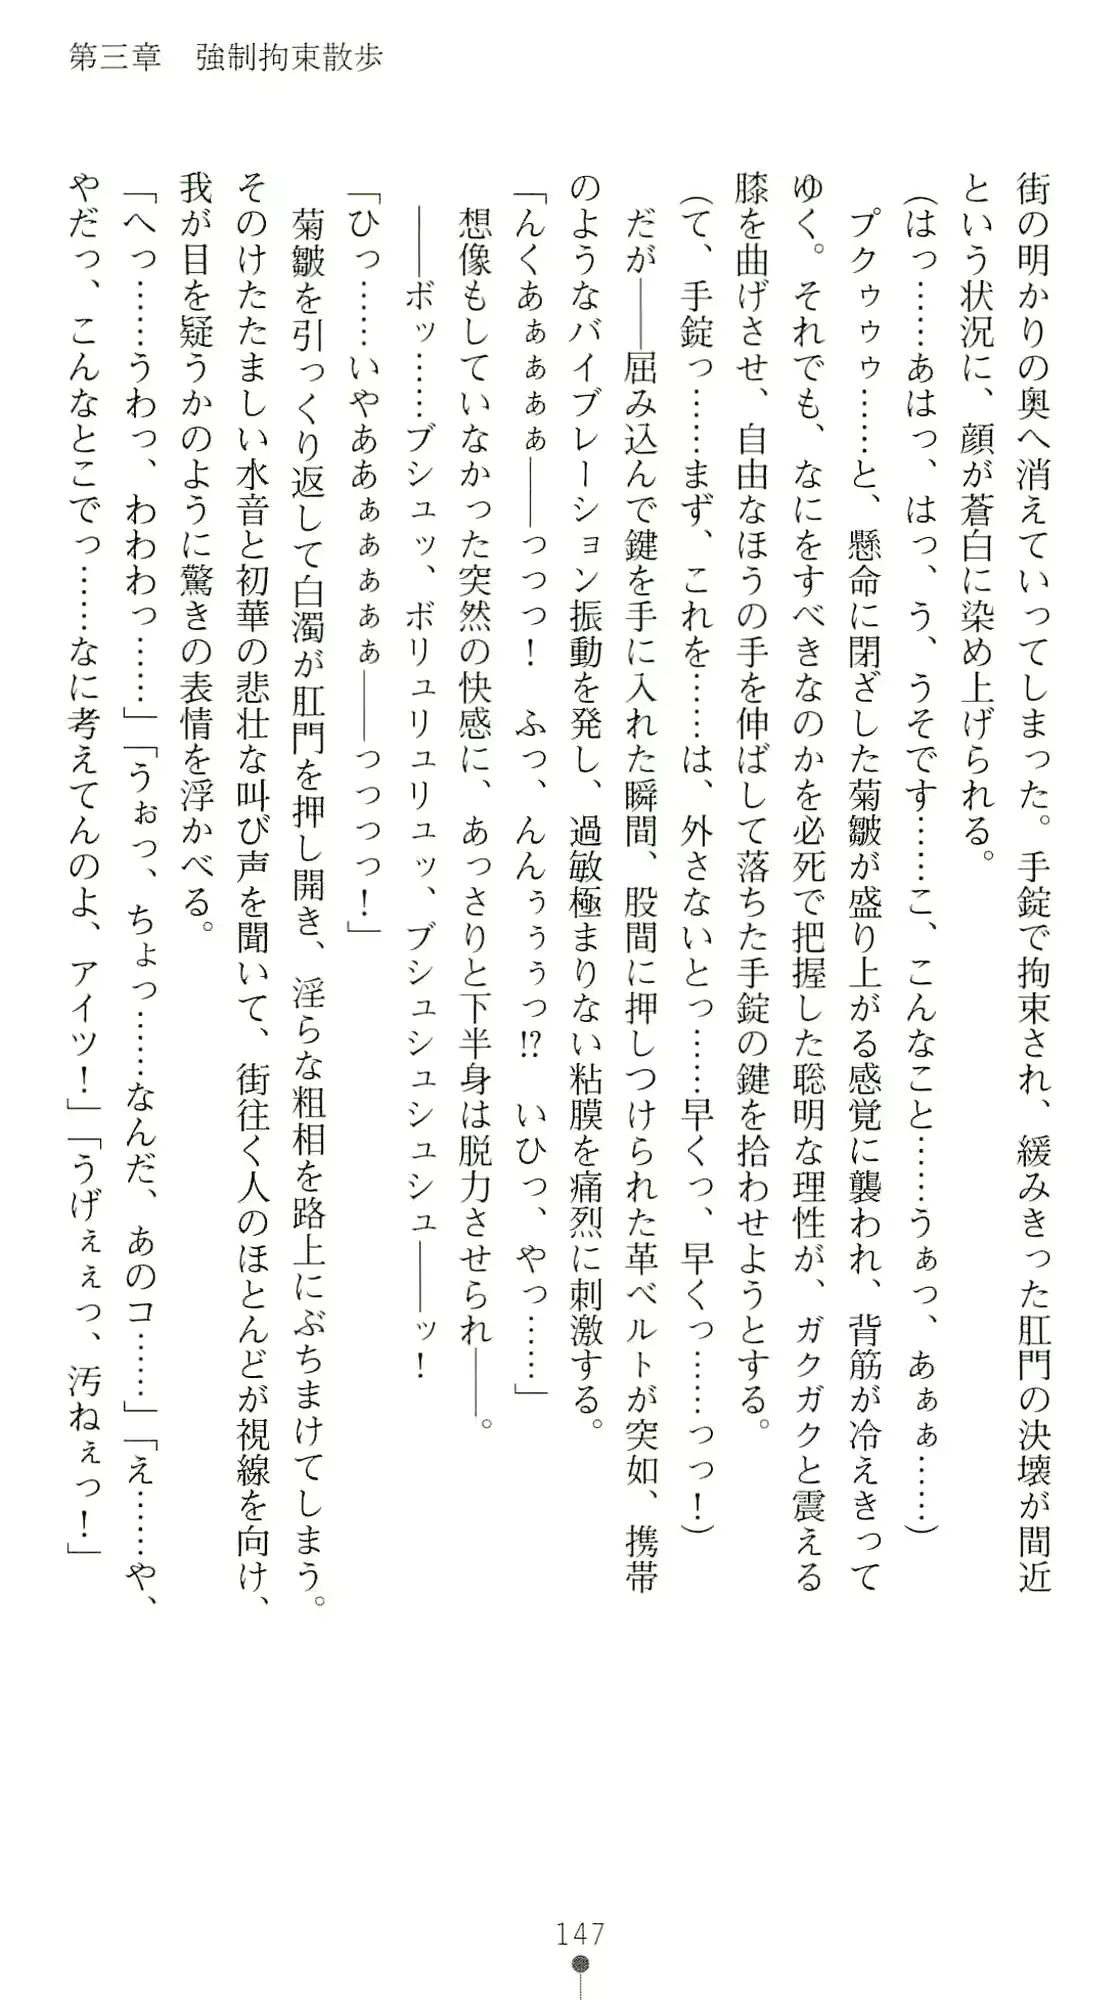 第三章　強制拘束散歩
街の明かりの奥へ消えていってしまった。手錠で拘束され、緩みきった肛門の決壊が間近
という状況に、顔が蒼白に染め上げられる。
（はっ……あはっ、はっ、う、うそです……こ、こんなこと……うぁっ、あぁぁ……）
プクゥゥゥ……と、懸命に閉ざした菊皺が盛り上がる感覚に襲われ、背筋が冷えきって
ゆく。それでも、なにをすべきなのかを必死で把握した聡明な理性が、ガクガクと震える
膝を曲げさせ、自由なほうの手を伸ばして落ちた手錠の鍵を拾わせようとする。
（て、手錠っ……まず、これを……は、外さないとっ……早くっ、早くっ……っっ！）
だが――屈み込んで鍵を手に入れた瞬間、股間に押しつけられた革ベルトが突如、携帯
のようなバイブレーション振動を発し、過敏極まりない粘膜を痛烈に刺激する。
「んくあぁぁぁぁ――っっっ！　ふっ、んんぅぅぅっ!?　いひっ、やっ……」
想像もしていなかった突然の快感に、あっさりと下半身は脱力させられ――。
――ボッ……ブシュッ、ボリュリュリュッ、ブシュシュシュシュ――ッ！
「ひっ……いやああぁぁぁぁぁ――っっっっ！」
菊皺を引っくり返して白濁が肛門を押し開き、淫らな粗相を路上にぶちまけてしまう。
そのけたたましい水音と初華の悲壮な叫び声を聞いて、街往く人のほとんどが視線を向け、
我が目を疑うかのように驚きの表情を浮かべる。
「へっ……うわっ、わわわっ……」「うぉっ、ちょっ……なんだ、あのコ……」「え……や、
やだっ、こんなとこでっ……なに考えてんのよ、アイツ！」「うげぇぇっ、汚ねぇっ！」
147